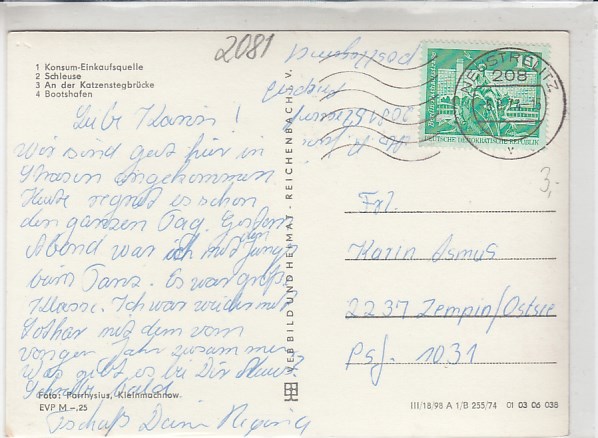 2081
1 Konsum-Einkaufsquelle
2 Schleuse
3 An der Katzenstegbrücke
4 Bootshafen
Liebe Klausi!
Wir sind gut hier in
angekommen
Heute regnet es schon
den ganzen Tag. Gestern
Abend war ich mit den Jungs
beim Tanz. Es war große
Klasse. Ich war wieder mit
Lothar mit dem vom
vorigen Jahr zusammen.
Was gibt es bei Dir Neues?
Schreibe bald
Tschüß Deine Regina
Foto: Parrhysius, Kleinmachnow
EVP M –,25
VEB BILD UND HEIMAT · REICHENBACH i. V.
postlagernd
2081
NEUSTRELITZ
208
DEUTSCHE DEMOKRATISCHE REPUBLIK
3,-
Frl.
Karin Asmus
2237 Zempin/Ostsee
Psf. 1031
III/18/98 A 1/B 255/74 01 03 06 038